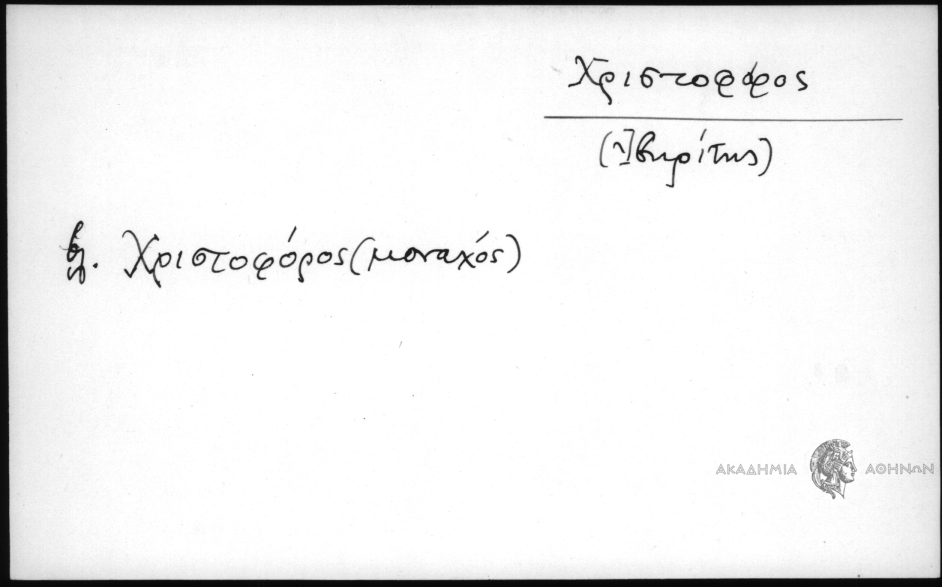 Χριστοφόρος
(Ἰβηρίτης)
βλ. Χριστοφόρος (μοναχός)
ΑΚΑΔΗΜΙΑ ΑΘΗΝΩΝ